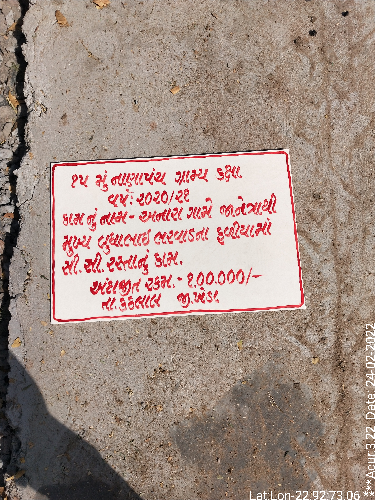 ૧૫ મું નાણાપંચ ગ્રામ્ય કક્ષા
વર્ષ:૨૦૨૦/૨૧
કામ નું નામ- અનારા ગામે
મુખ્ય બુધાભાઇ ભરવાડના ફળીયામાં
સી.સી.રસ્તાનું કામ.
અંદાજીત રકમ.- ૧,૦૦,૦૦૦/-
તા.કઠલાલ જી.ખેડા
Lat:Lon-22.92:73.06 **
***Acur:3.22 Date: 24-02-2022